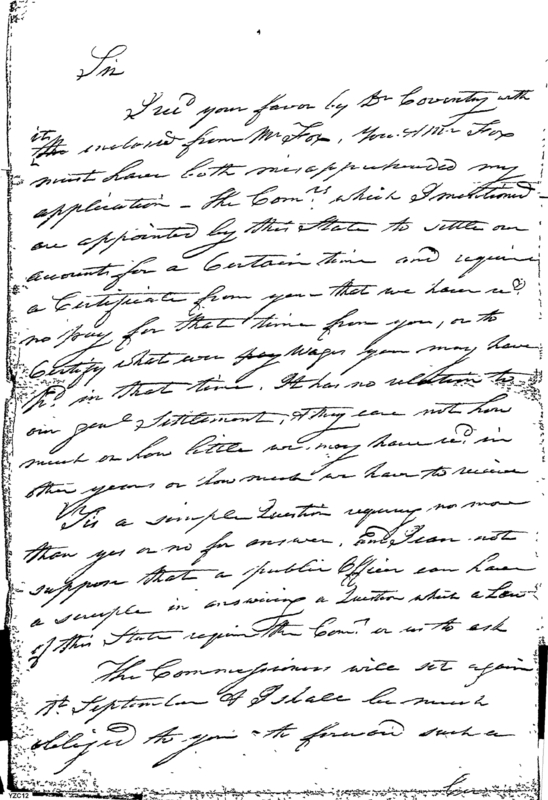 Sir
I rec.d your favor by Dr Coventry with
its enclosed from Mr Fox, You & Mr Fox
must have both misapprehended my
application – the Com.rs which I mentioned
are appointed by this State to settle our
accounts for a Certain time and require
a Certificate from you – that we have re.d
no pay for that time from you, or to
Certify what ever pay Wages you may have
p.d in that time. It has no relation to
our gen.l Settlement, & they care not how
much or how little we may have re.d in
other years or how much we have to receive
Tis a simple Question requiring no more
than yes or no for answer, and I can not
suppose that a public Officer can have
a scruple in answering a Question which a Law
of this State requires the Com.rs or us to ask
The Commissioners will set again
in September & I shall be much
obliged to you to forward such a
YZC12